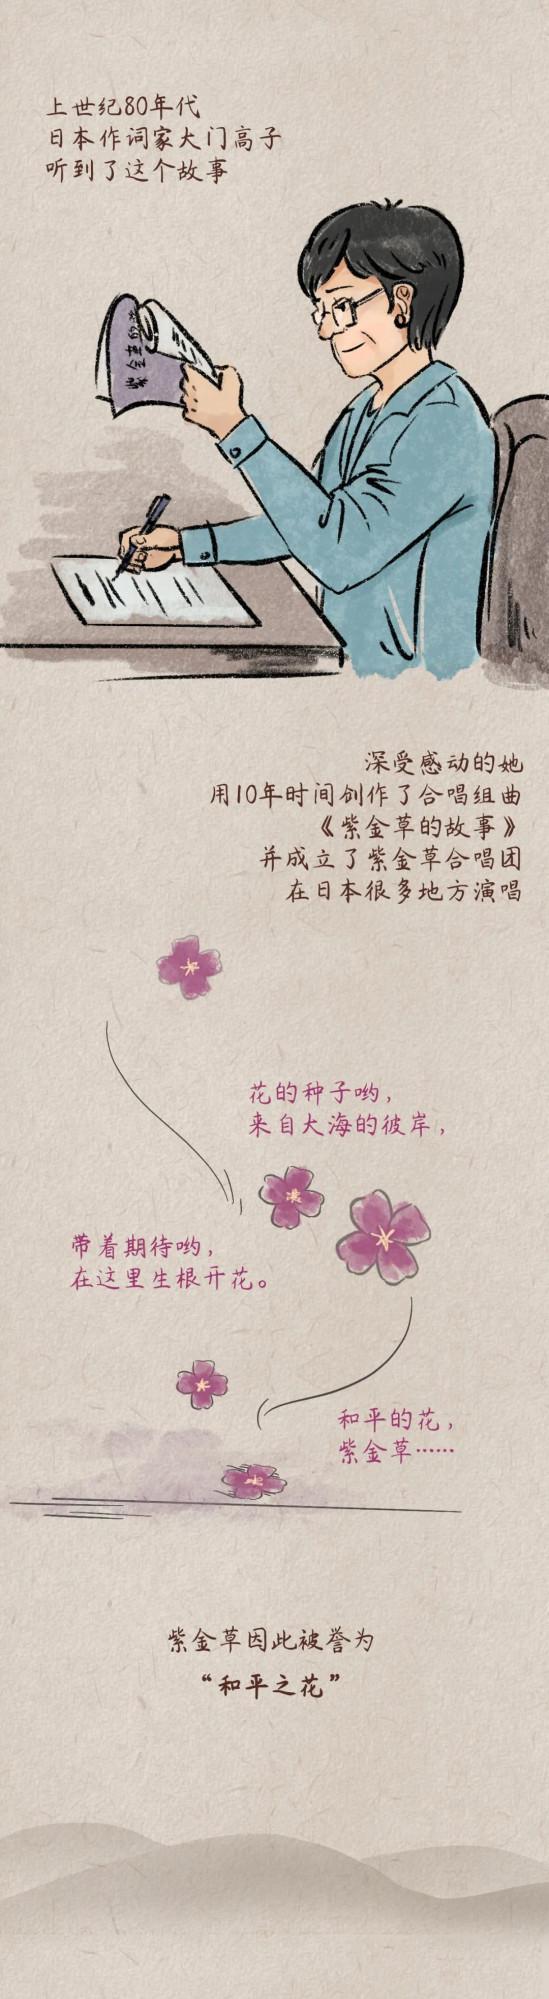 上世纪80年代
日本作词家大门高子
听到了这个故事
紫金草的
深受感动的她
用10年时间创作了合唱组曲
《紫金草的故事》
并成立了紫金草合唱团
在日本很多地方演唱
花的种子哟，
来自大海的彼岸，
带着期待哟，
在这里生根开花。
和平的花，
紫金草……
紫金草因此被誉为
“和平之花”